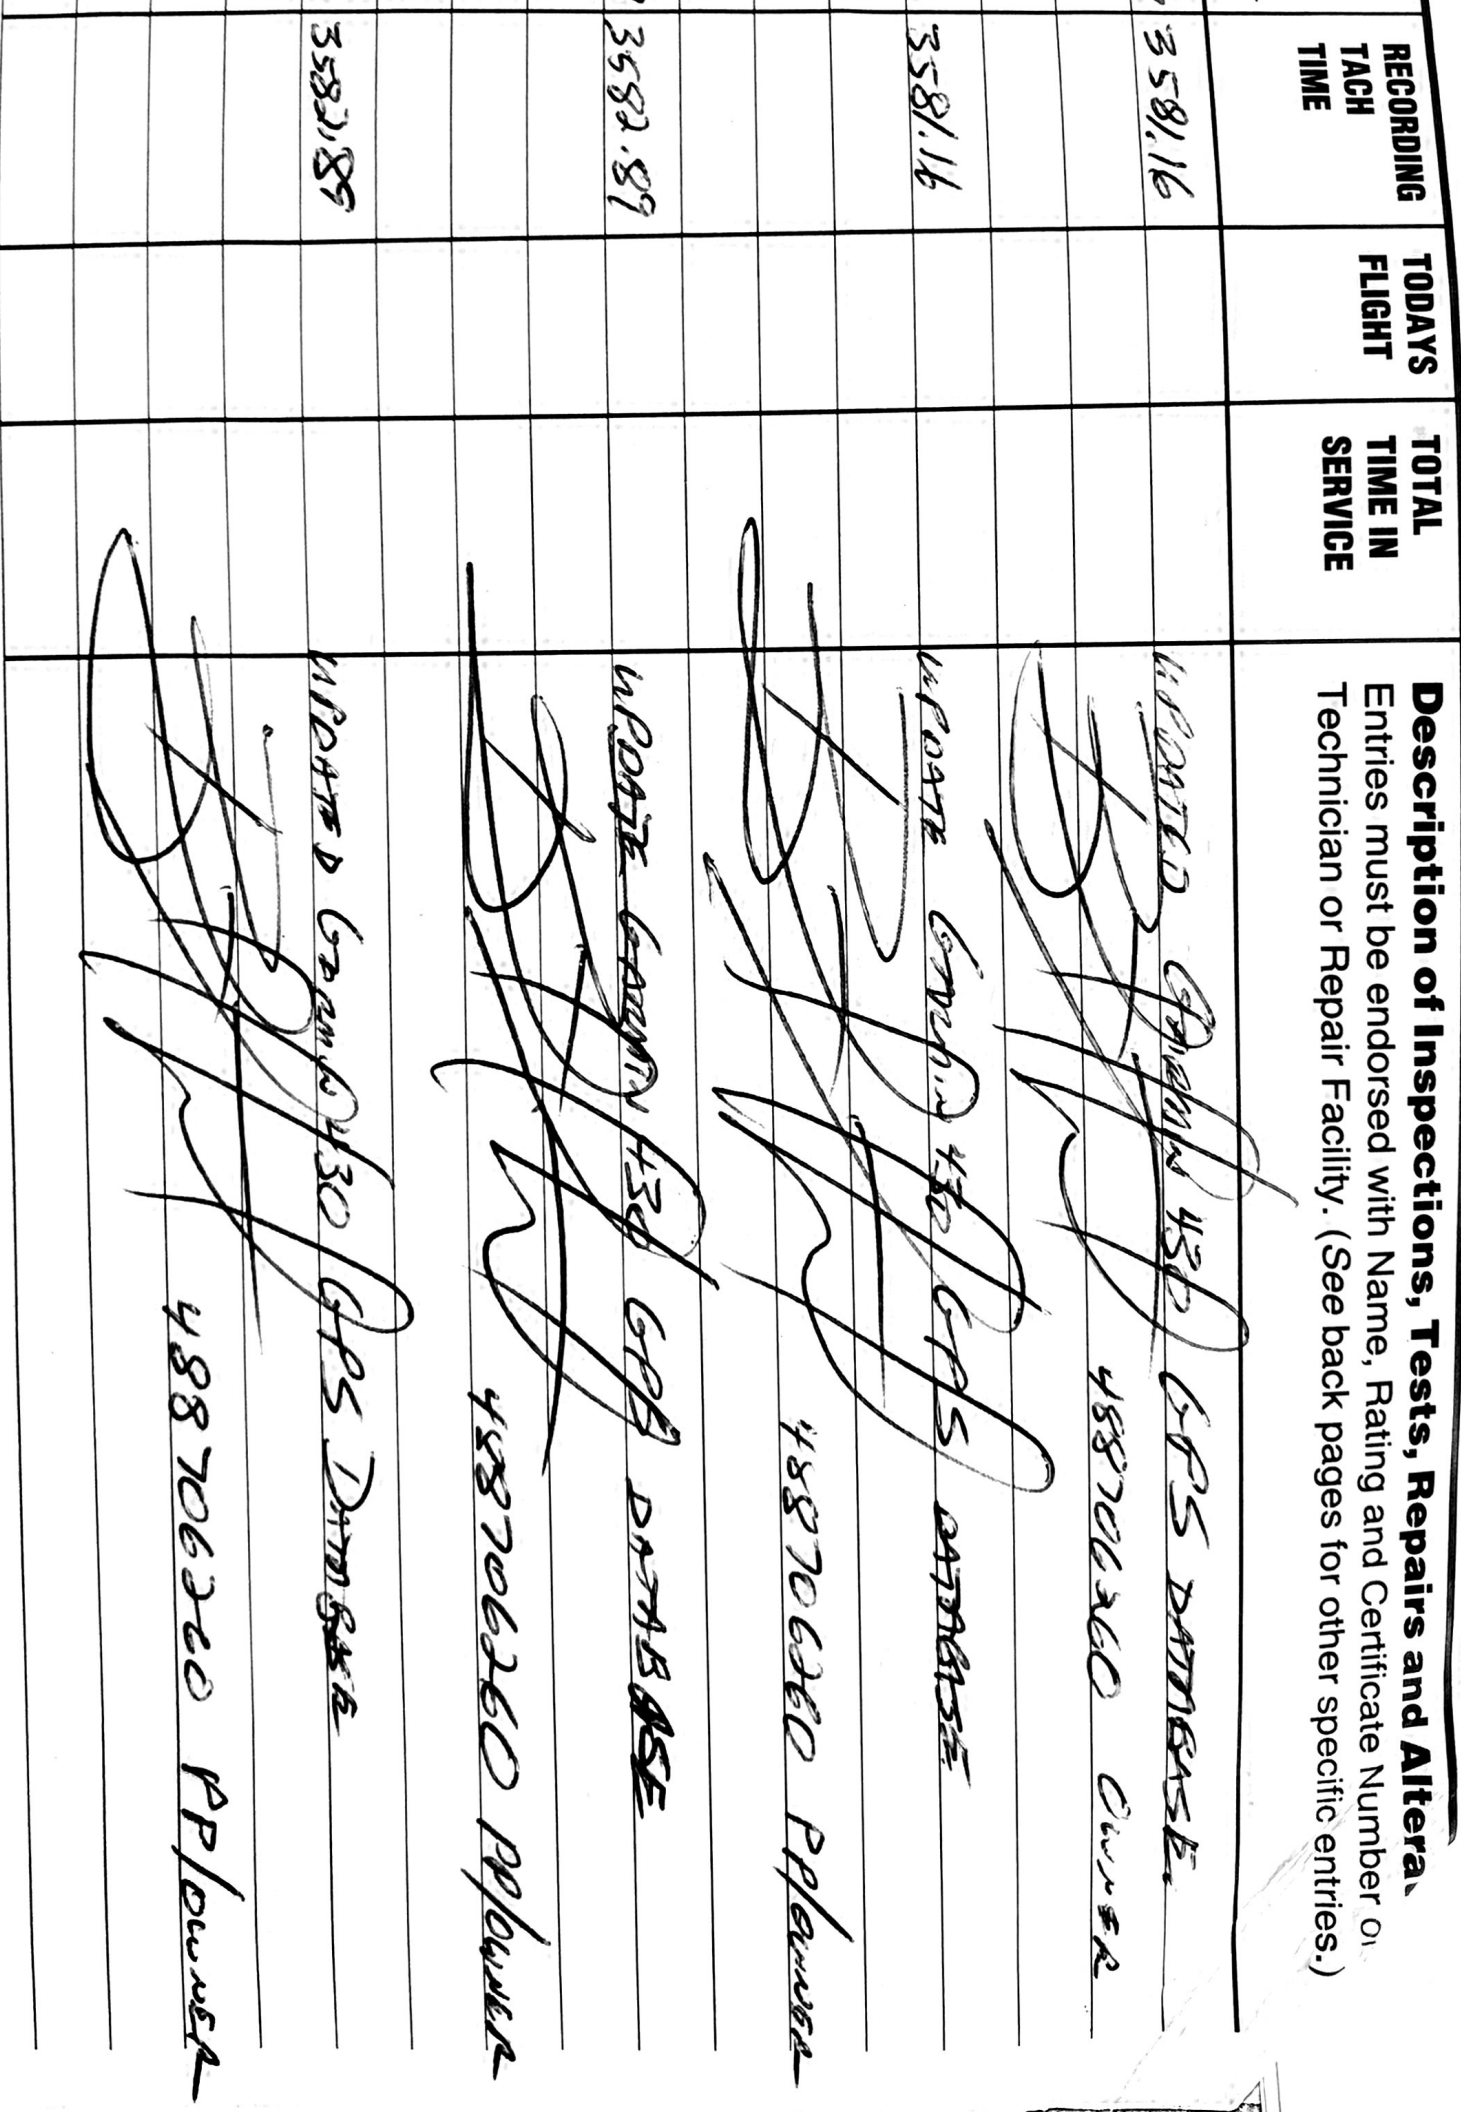 RECORDING
TACH
TIME
TODAYS
FLIGHT
TOTAL
TIME IN
SERVICE
Description of Inspections, Tests, Repairs and Altera
Entries must be endorsed with Name, Rating and Certificate Number or
Technician or Repair Facility. (See back pages for other specific entries.)
3581.16 UPDATED GARMIN 430 GPS DATABASE
488706260 OWNER
3581.16 UPDATE GARMIN 430 GPS DATABASE
488706260 PP/OWNER
3582.89 UPDATE GARMIN 430 GPS DATABASE
488706260 PP/OWNER
3582.89 UPDATED GARMIN 430 GPS DATABASE
488706260 PP/OWNER